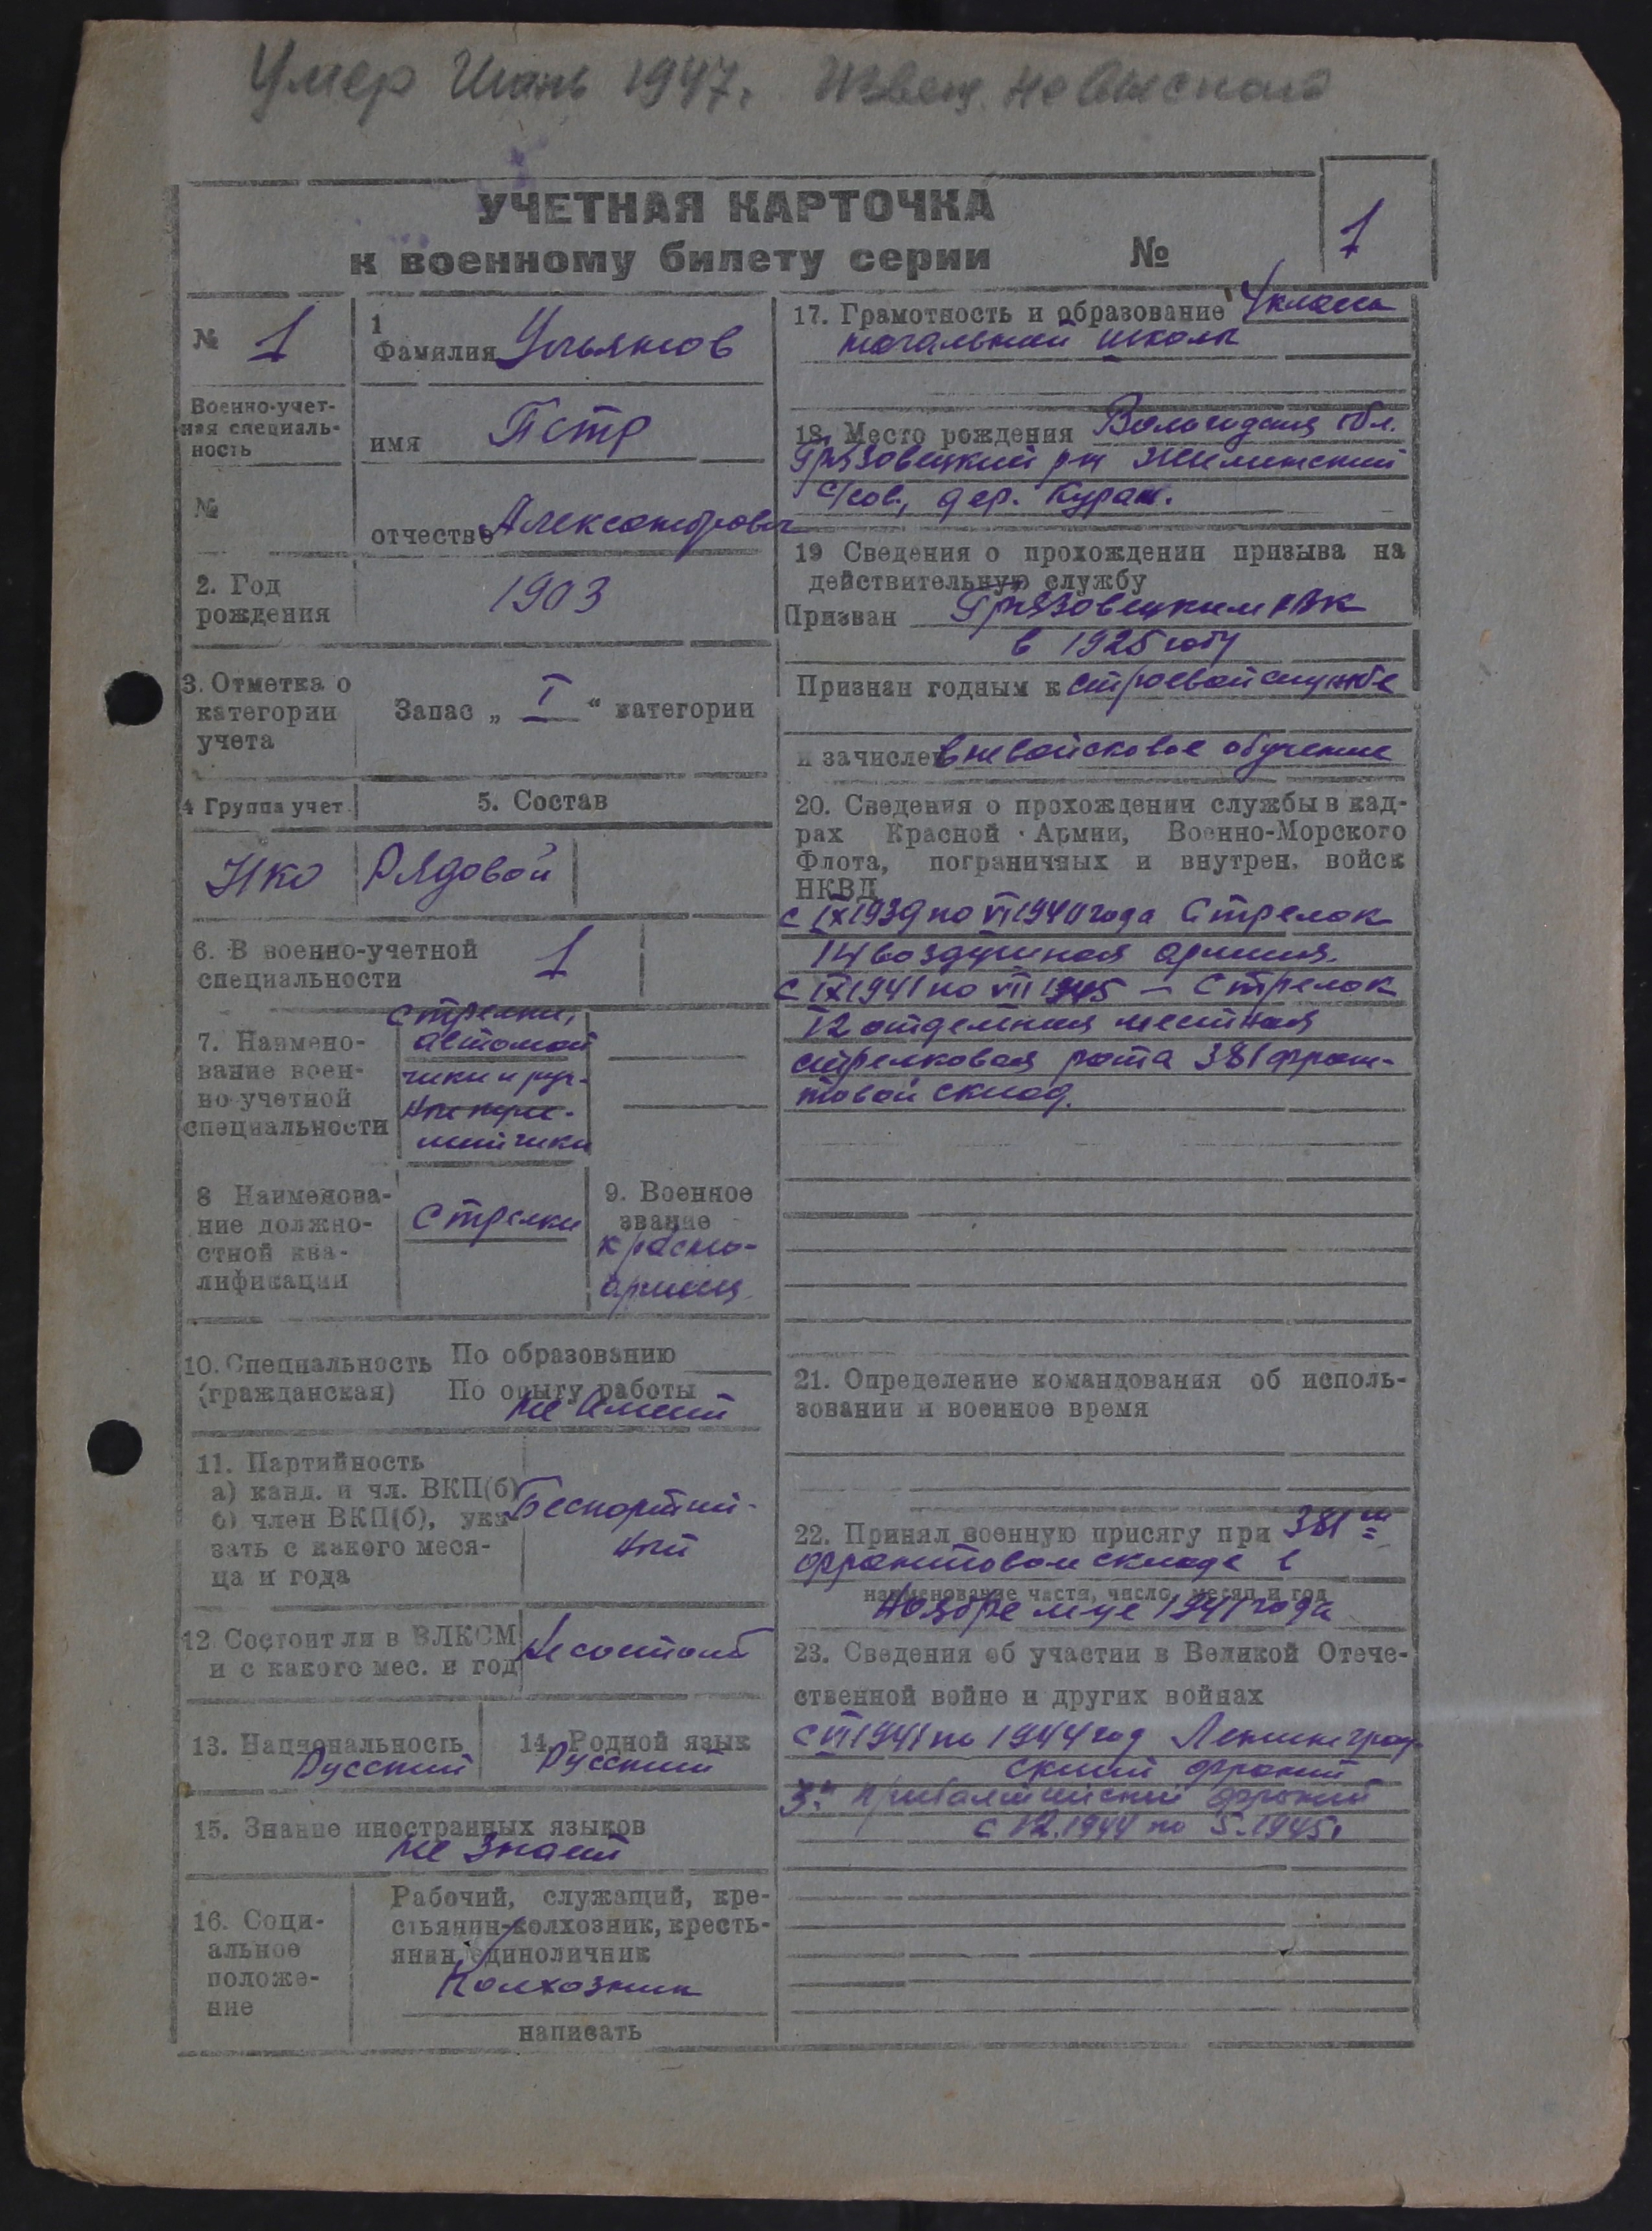 Умер Июнь 1947. Извещ. не выслано
УЧЕТНАЯ КАРТОЧКА
к военному билету серии № 1
№ 1
Военно-учет-
ная специаль-
ность
№
1
Фамилия Ульянов
имя Петр
отчество Александрович
2. Год
рождения
1903
3. Отметка о
категории
учета
Запас „ I “ категории
4 Группа учет.
5. Состав
НКО Рядовой
6. В военно-учетной
специальности
1
7. Наимено-
вание воен-
но-учетной
специальности
Стрелки,
автомат
чики и руч-
ные пуле-
метчики
8 Наименова-
ние должно-
стной ква-
лификации
Стрелки
9. Военное
звание
красно-
армеец
10. Специальность
(гражданская)
По образованию
По опыту работы
не имеет
11. Партийность
а) канд. и чл. ВКП(б)
б) член ВКП(б), ука
зать с какого меся-
ца и года
Беспартий-
ный
12 Состоит ли в ВЛКСМ
и с какого мес. и год
Не состоит
13. Национальность
Русский
14. Родной язык
Русский
15. Знание иностранных языков
не знает
16. Соци-
альное
положе-
ние
Рабочий, служащий, кре-
стьянин-колхозник, кресть-
янин, единоличник
Колхозник
написать
17. Грамотность и образование 4 класса
начальной школы
18. Место рождения Вологодская обл.
Грязовецкий р-н
с/сов., дер.
19 Сведения о прохождении призыва на
действительную службу
Призван Грязовецким РВК
в 1925 году
Признан годным к строевой службе
и зачислен вневойсковое обучение
20. Сведения о прохождении службы в кад-
рах Красной Армии, Военно-Морского
Флота, пограничных и внутрен. войск
НКВД
с IX 1939 по VI 1940 года Стрелок
14 воздушная армия.
с IX 1941 по VII 1945 — Стрелок
12 отдельная местная
стрелковая рота 381 фрон-
товой склад.
21. Определение командования об исполь-
зовании и военное время
22. Принял военную присягу при 381 м
фронтовом складе в
наименование части, число, месяц и год
Ноябре м-це 1941 года
23. Сведения об участии в Великой Отече-
ственной войне и других войнах
с VI 1941 по 1944 год Ленинград-
ский фронт
3й Прибалтийский фронт
с 12.1944 по 5.1945г